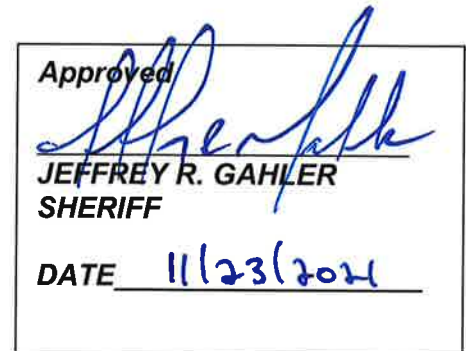 Approved
JEFFREY R. GAHLER
SHERIFF
DATE 11/23/2021